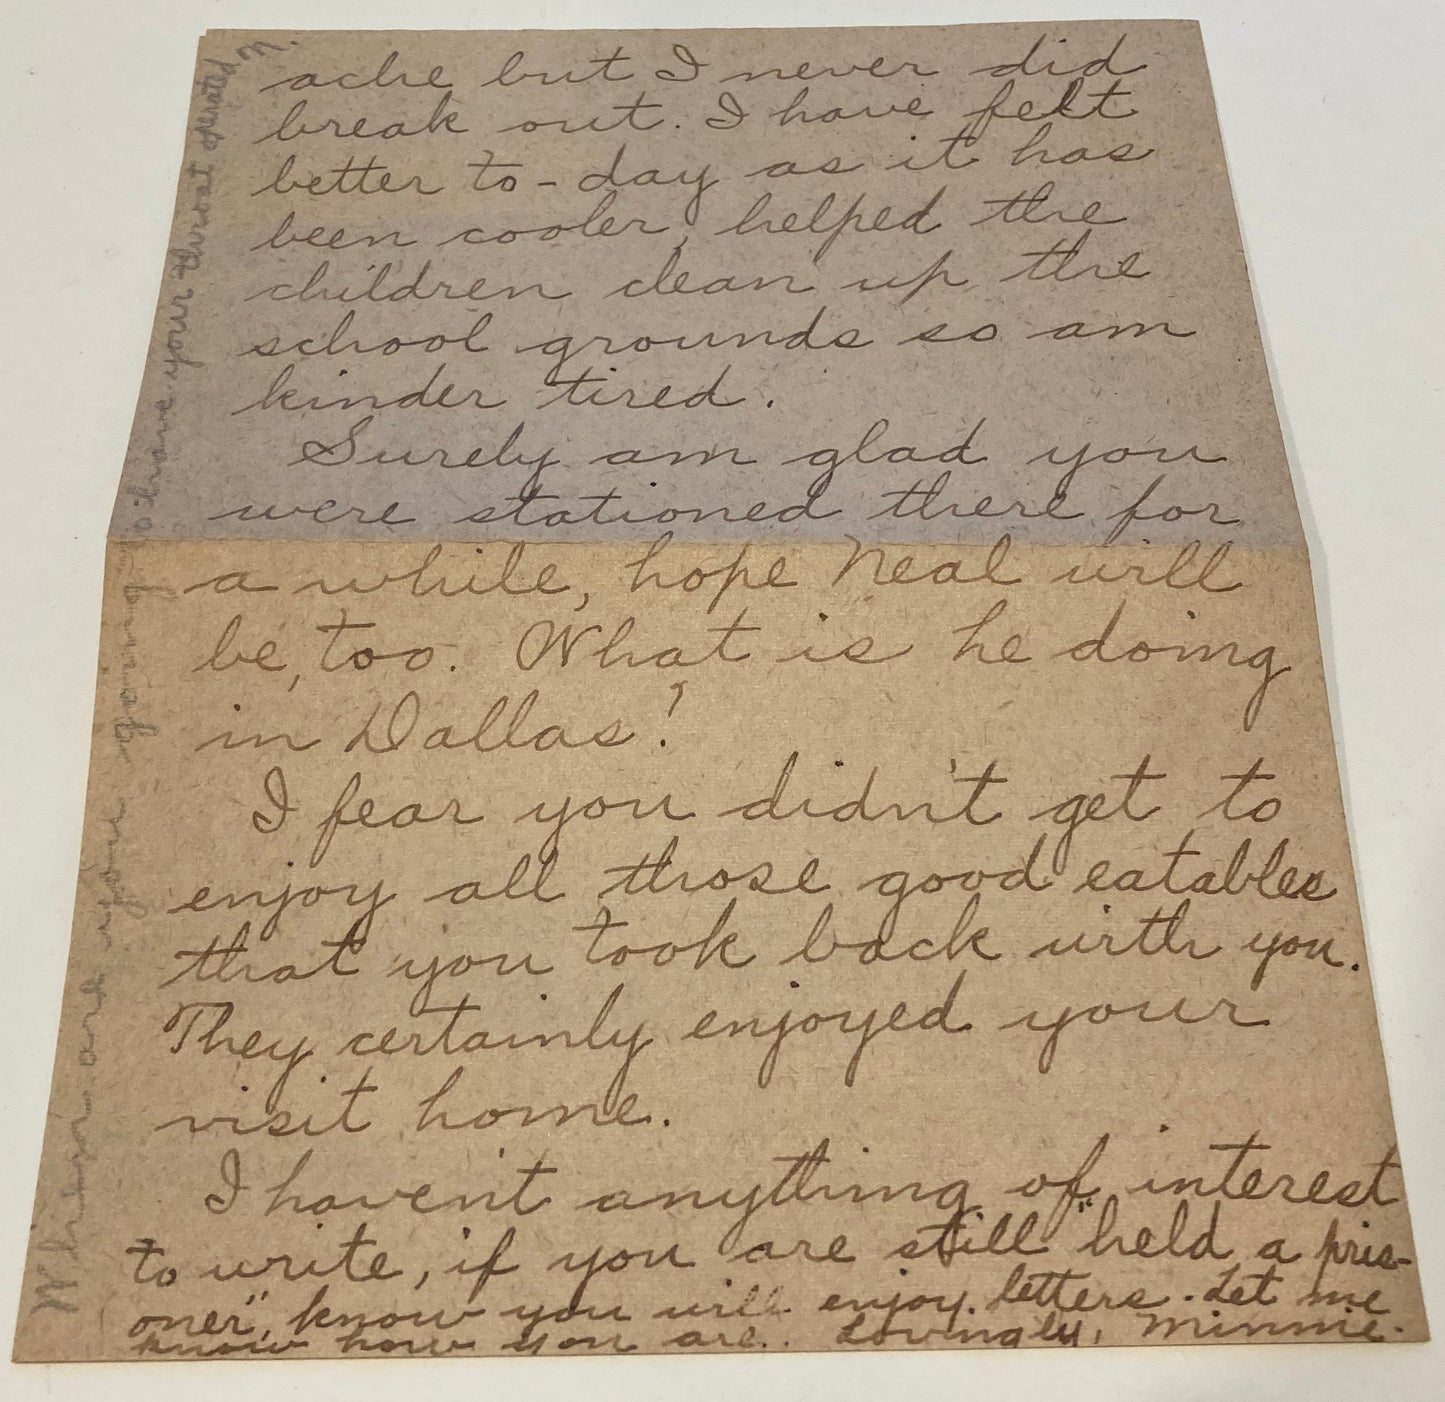 ache but I never did
break out. I have felt
better to-day as it has
been cooler, helped the
children clean up the
school grounds so am
kinder tired.
Surely am glad you
were stationed there for
a while, hope Neal will
be, too. What is he doing
in Dallas?
I fear you didn't get to
enjoy all those good eatables
that you took back with you.
They certainly enjoyed your
visit home.
I haven't anything of interest
to write, if you are still "held a pris-
oner", know you will enjoy letters. Let me
know how you are. Lovingly, Minnie.
When are you going to have your throat operated